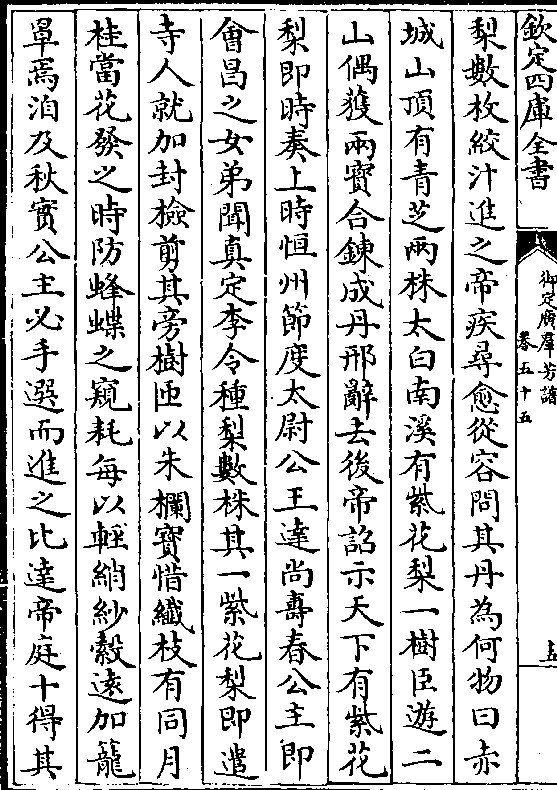 欽定四庫全書
御定廣羣芳譜
卷五十五
梨數枚絞汁進之帝疾尋愈從容問其丹為何物曰赤
城山頂有青芝兩株太白南溪有紫花梨一樹臣遊二
山偶獲兩寳合鍊成丹邢辭去後帝詔示天下有紫花
梨即時奏上時恒州節度太尉公王達尚夀春公主即
會昌之女弟聞真定李令種梨數株其一紫花梨即遣
寺人就加封檢剪其旁樹匝以朱欄寳惜纎枝有同月
桂當花發之時防蜂蝶之窺耗每以輕綃紗縠逺加籠
罩焉洎及秋實公主必手選而進之比達帝庭十得其